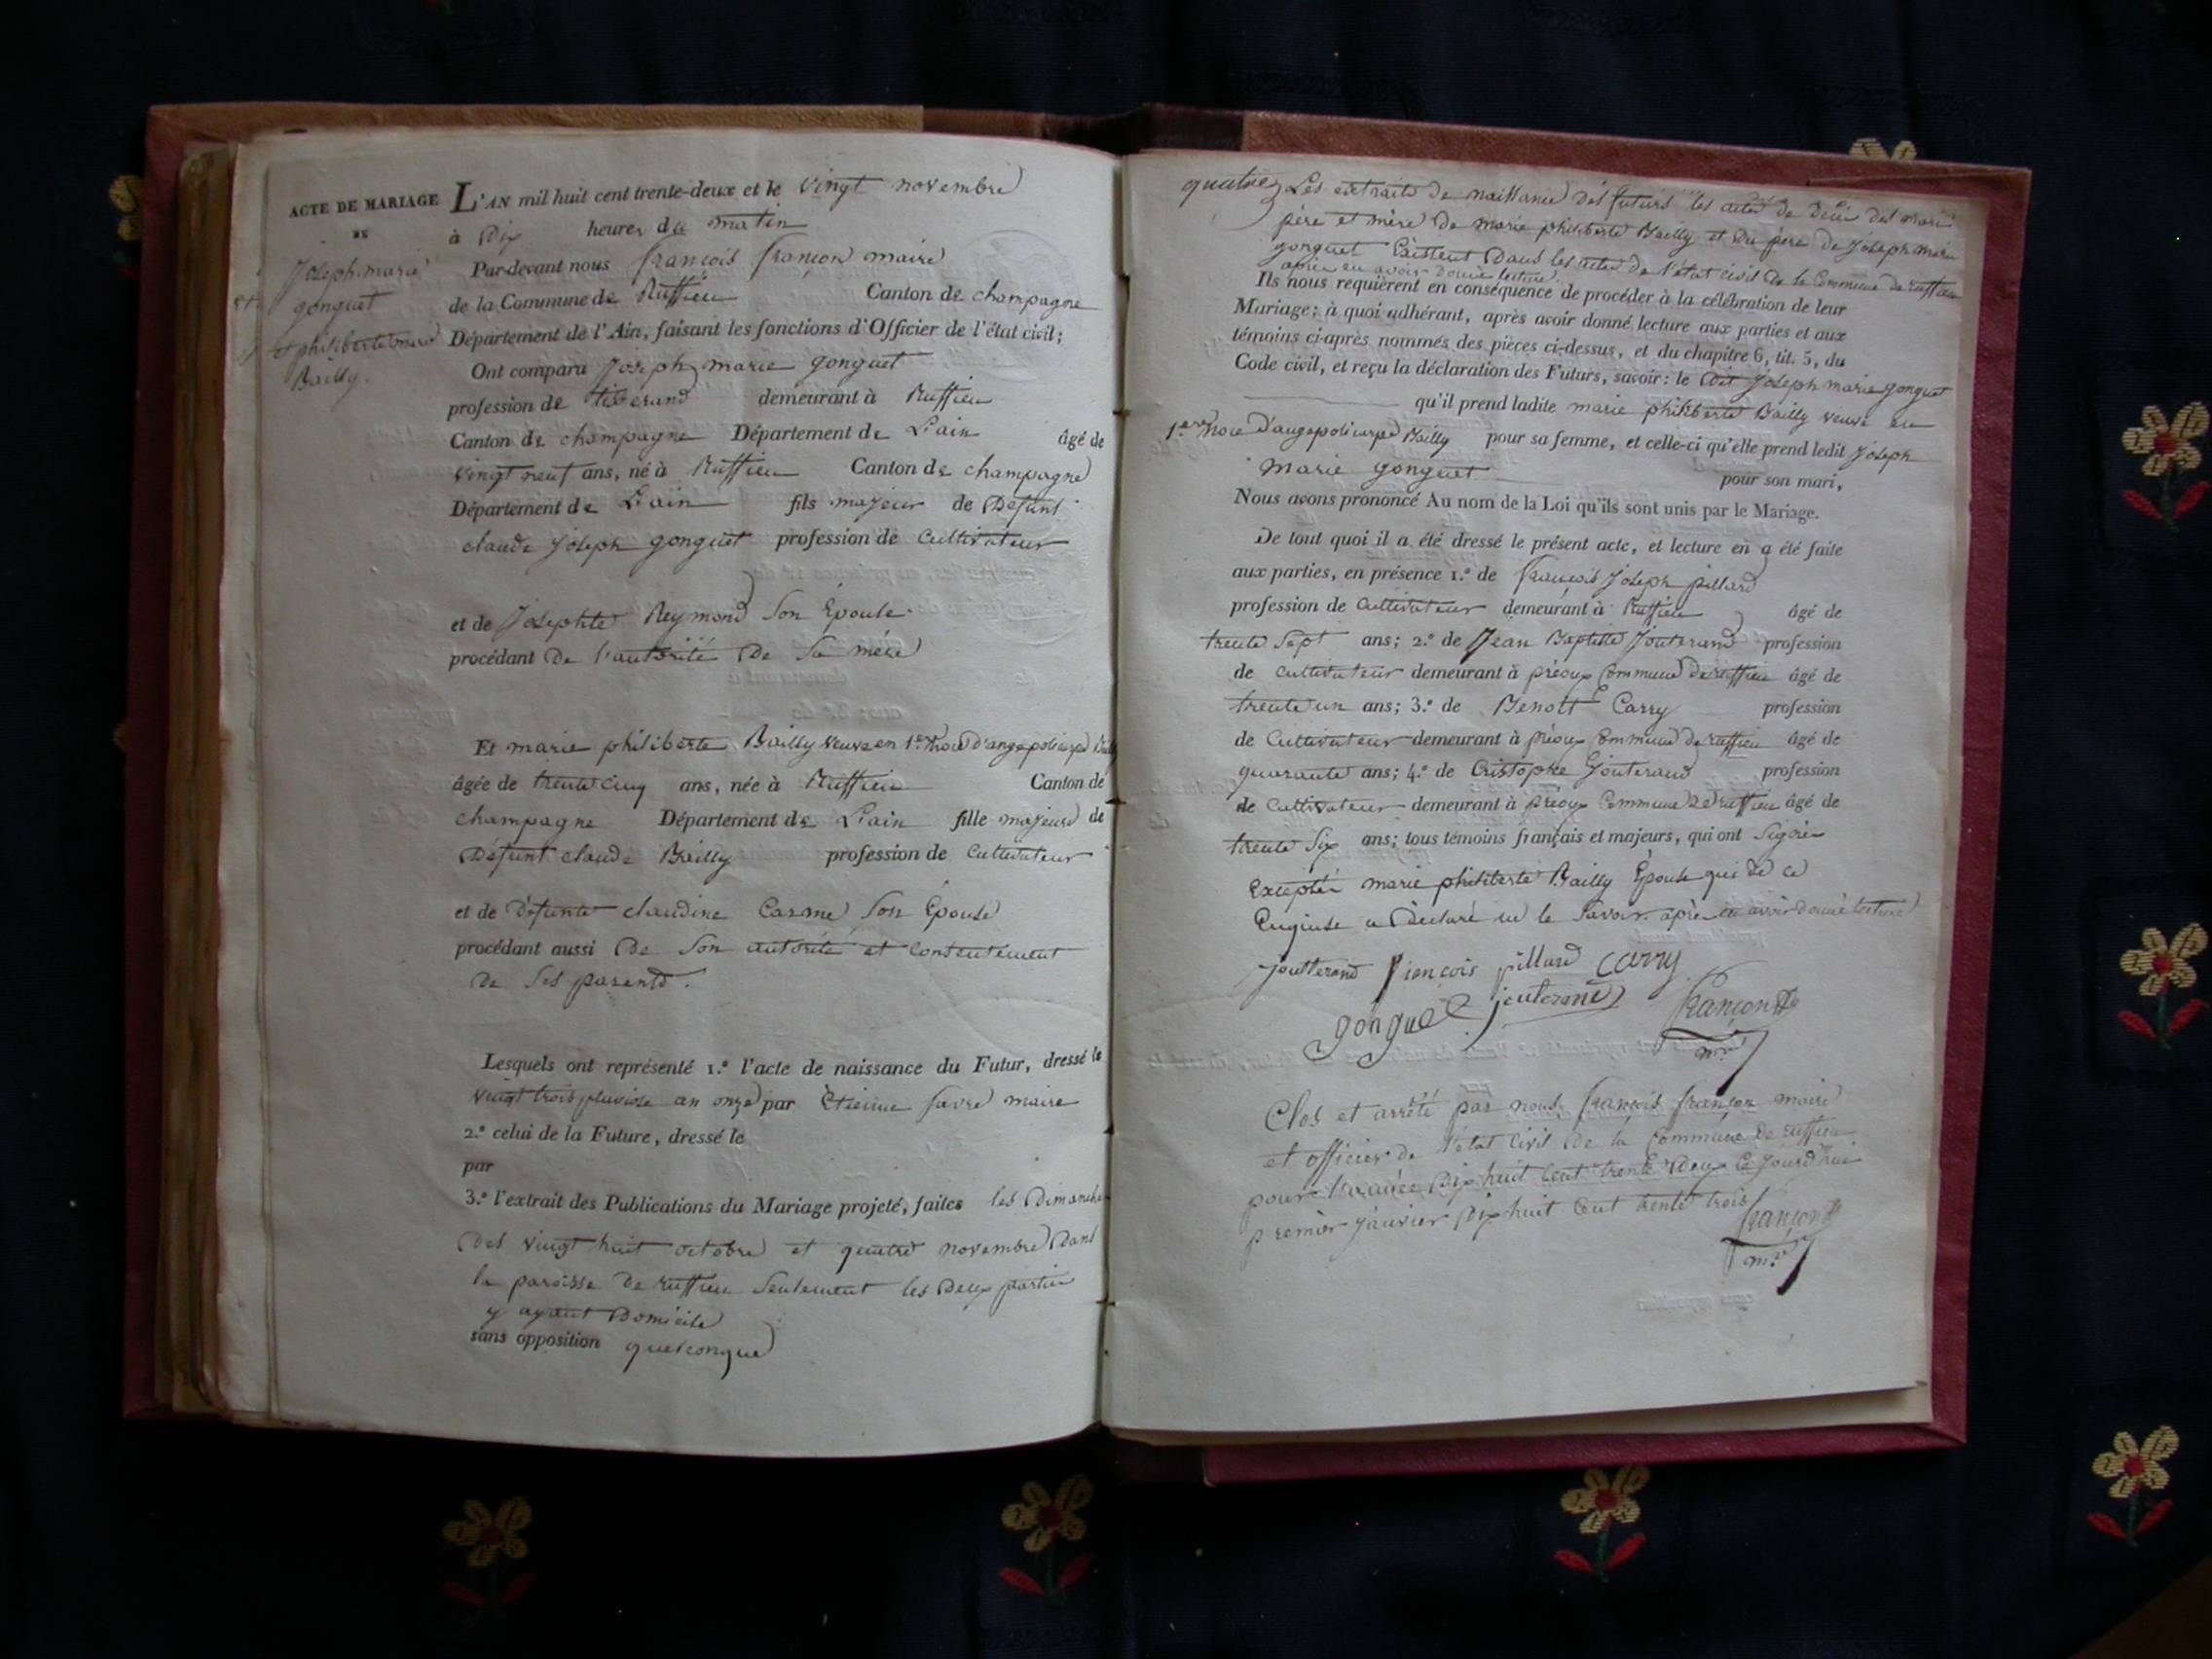 ACTE DE MARIAGE
DE
Joseph marie
gonguet
et philiberte marie
Bailly.
L'AN mil huit cent trente-deux et le vingt novembre
à Dix heures du matin
Par-devant nous françois françon maire
de la Commune de Ruffieu Canton de champagne
Département de l'Ain, faisant les fonctions d'Officier de l'état civil;
Ont comparu Joseph marie gonguet
profession de tisserand demeurant à Ruffieu
Canton de champagne Département de L'ain âgé de
vingt neuf ans, né à Ruffieu Canton de champagne
Département de L'ain fils majeur de Defunt
claude Joseph gonguet profession de Cultivateur
et de Josephte Reymond Son Epouse
procédant De l'autorité De Sa mère
Et marie philiberte Bailly veuve en 1ere Noce d'ange policarpe Bailly
âgée de trente cinq ans, née à Ruffieu Canton de
champagne Département de L'ain fille majeure de
Défunt claude Bailly profession de Cultivateur
et de défunte claudine Carme Son Epouse
procédant aussi De Son autorité et Consentement
De Ses parents.
Lesquels ont représenté 1.º l'acte de naissance du Futur, dressé le
vingt trois pluviose an onze par Etienne favre maire
2.º celui de la Future, dressé le
par
3.º l'extrait des Publications du Mariage projeté, faites les Dimanche
Des vingt huit octobre et quatre novembre Dans
la paroisse De ruffieu Seulement les Deux partie
y ayant Domicile
sans opposition quelconque
quatre Les extraits de naissance des futurs les actes de décès des mari
père et mère De marie philiberte Bailly et du père de Joseph marie
gonguet Existent Dans les actes de l'état civil De la Commune de ruffieu
après en avoir donné lecture.
Ils nous requièrent en conséquence de procéder à la célébration de leur
Mariage; à quoi adhérant, après avoir donné lecture aux parties et aux
témoins ci-après nommés des pièces ci-dessus, et du chapitre 6, tit. 5, du
Code civil, et reçu la déclaration des Futurs, savoir: le dit Joseph marie gonguet
qu'il prend ladite marie philiberte Bailly veuve en
1.ere Noce D'ange policarpe Bailly pour sa femme, et celle-ci qu'elle prend ledit Joseph
Marie gonguet pour son mari,
Nous avons prononcé Au nom de la Loi qu'ils sont unis par le Mariage.
De tout quoi il a été dressé le présent acte, et lecture en a été faite
aux parties, en présence 1.º de françois Joseph pillard
profession de Cultivateur demeurant à Ruffieu âgé de
trente Sept ans; 2.º de Jean Baptiste Jouterand profession
de cultivateur demeurant à préoux Commune de ruffieu âgé de
trente un ans; 3.º de Benoit Carry profession
de Cultivateur demeurant à préoux Commune de ruffieu âgé de
quarante ans; 4.º de Cristophe Jouterand profession
de Cultivateur demeurant à préoux Commune de ruffieu âgé de
trente Six ans; tous témoins français et majeurs, qui ont Signé
Excepté marie philiberte Bailly Epouse qui de ce
Enquise a Déclaré ne le Savoir. après en avoir donné lecture
joutterand francois pillard carry
gonguet jouterand françon
m.re
Clos et arrêté par nous françois françon maire
et officier de l'état civil De la Commune de ruffieu
pour l'année Dix huit Cent trente Deux Ce Jourd'hui
premier Janvier Dix huit Cent trente trois
françon
m.re